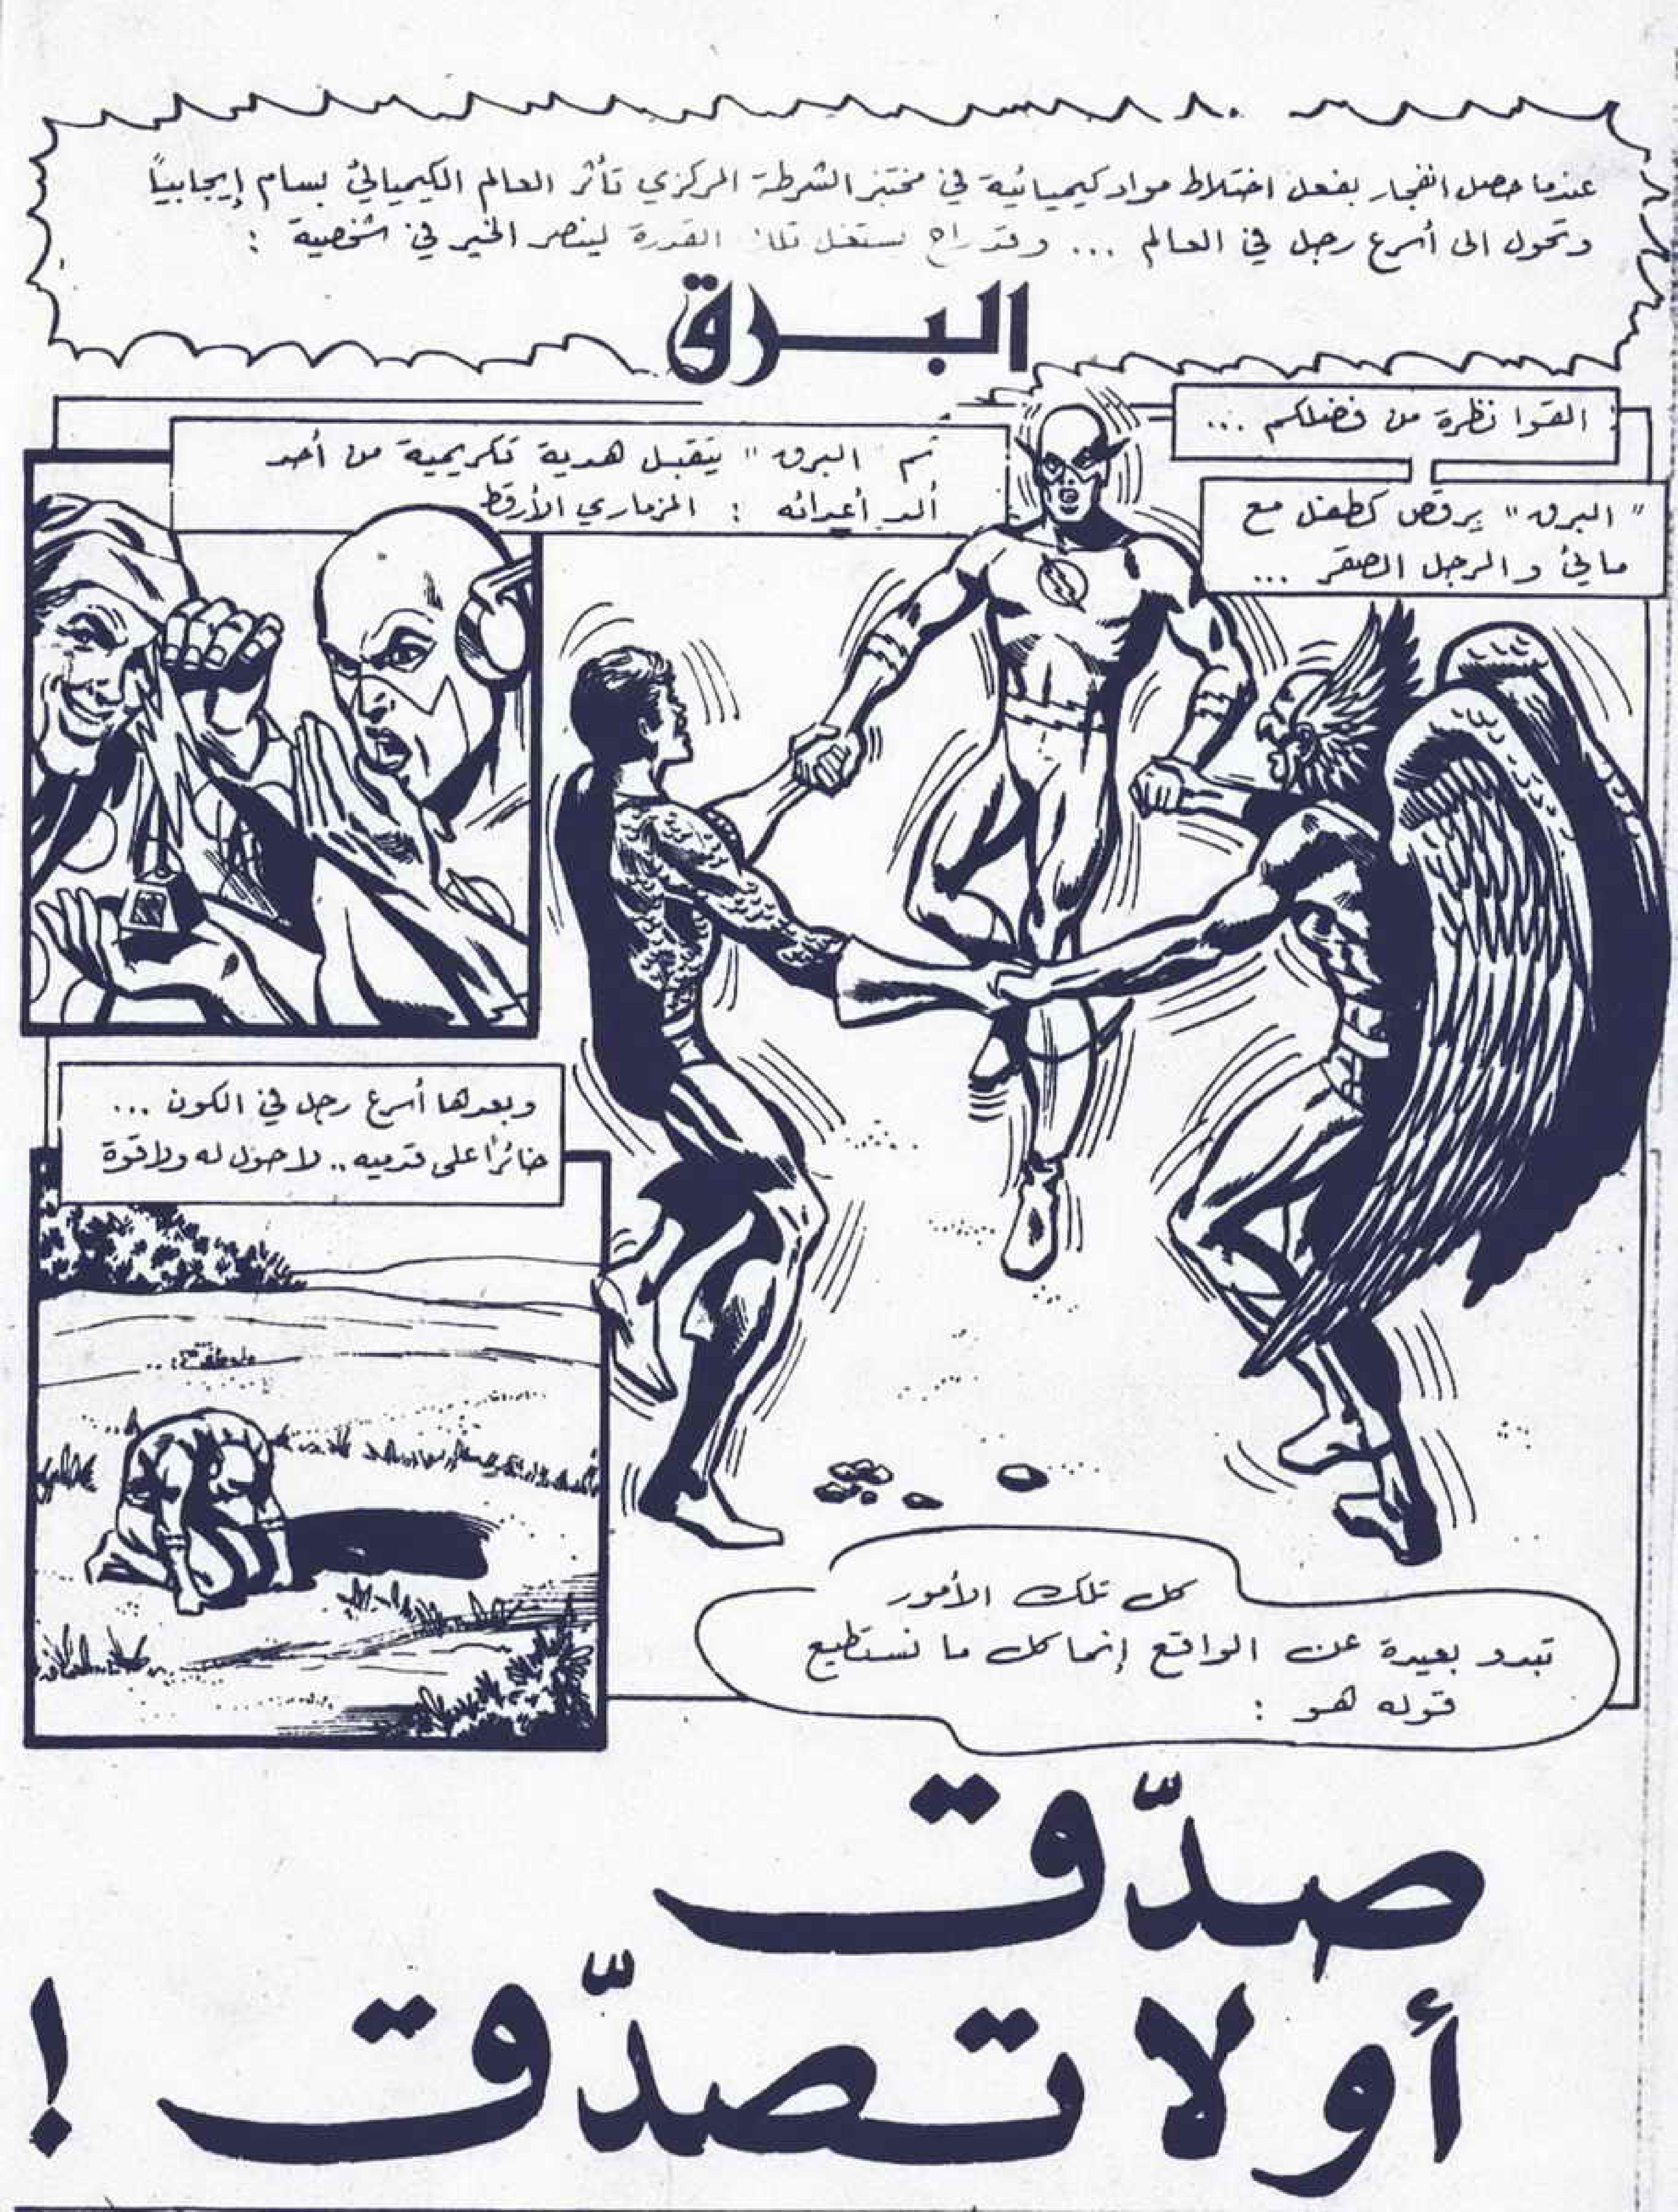 عندما حصل انفجار بفعل اختلاط مواد كيميائية في مختبر الشرطة المركزي تأثر العالم الكيميائي بسام إيجابياً
وتحول الى أسرع رجل في العالم ... وقد راح يستغل تلك القدرة لينصر الخير في شخصية :
البرق
القوا نظرة من فضلكم ...
"البرق" يرقص كطفل مع
مائي والرجل الصقر ...
ثم "البرق" يتقبل هدية تكريمية من أحد
ألد أعدائه : المزماري الأرقط
وبعدها أسرع رجل في الكون ...
خائراً على قدميه .. لا حول له ولا قوة
كل تلك الأمور
تبدو بعيدة عن الواقع إنما كل ما نستطيع
قوله هو :
صدّق
أو لا تصدّق !